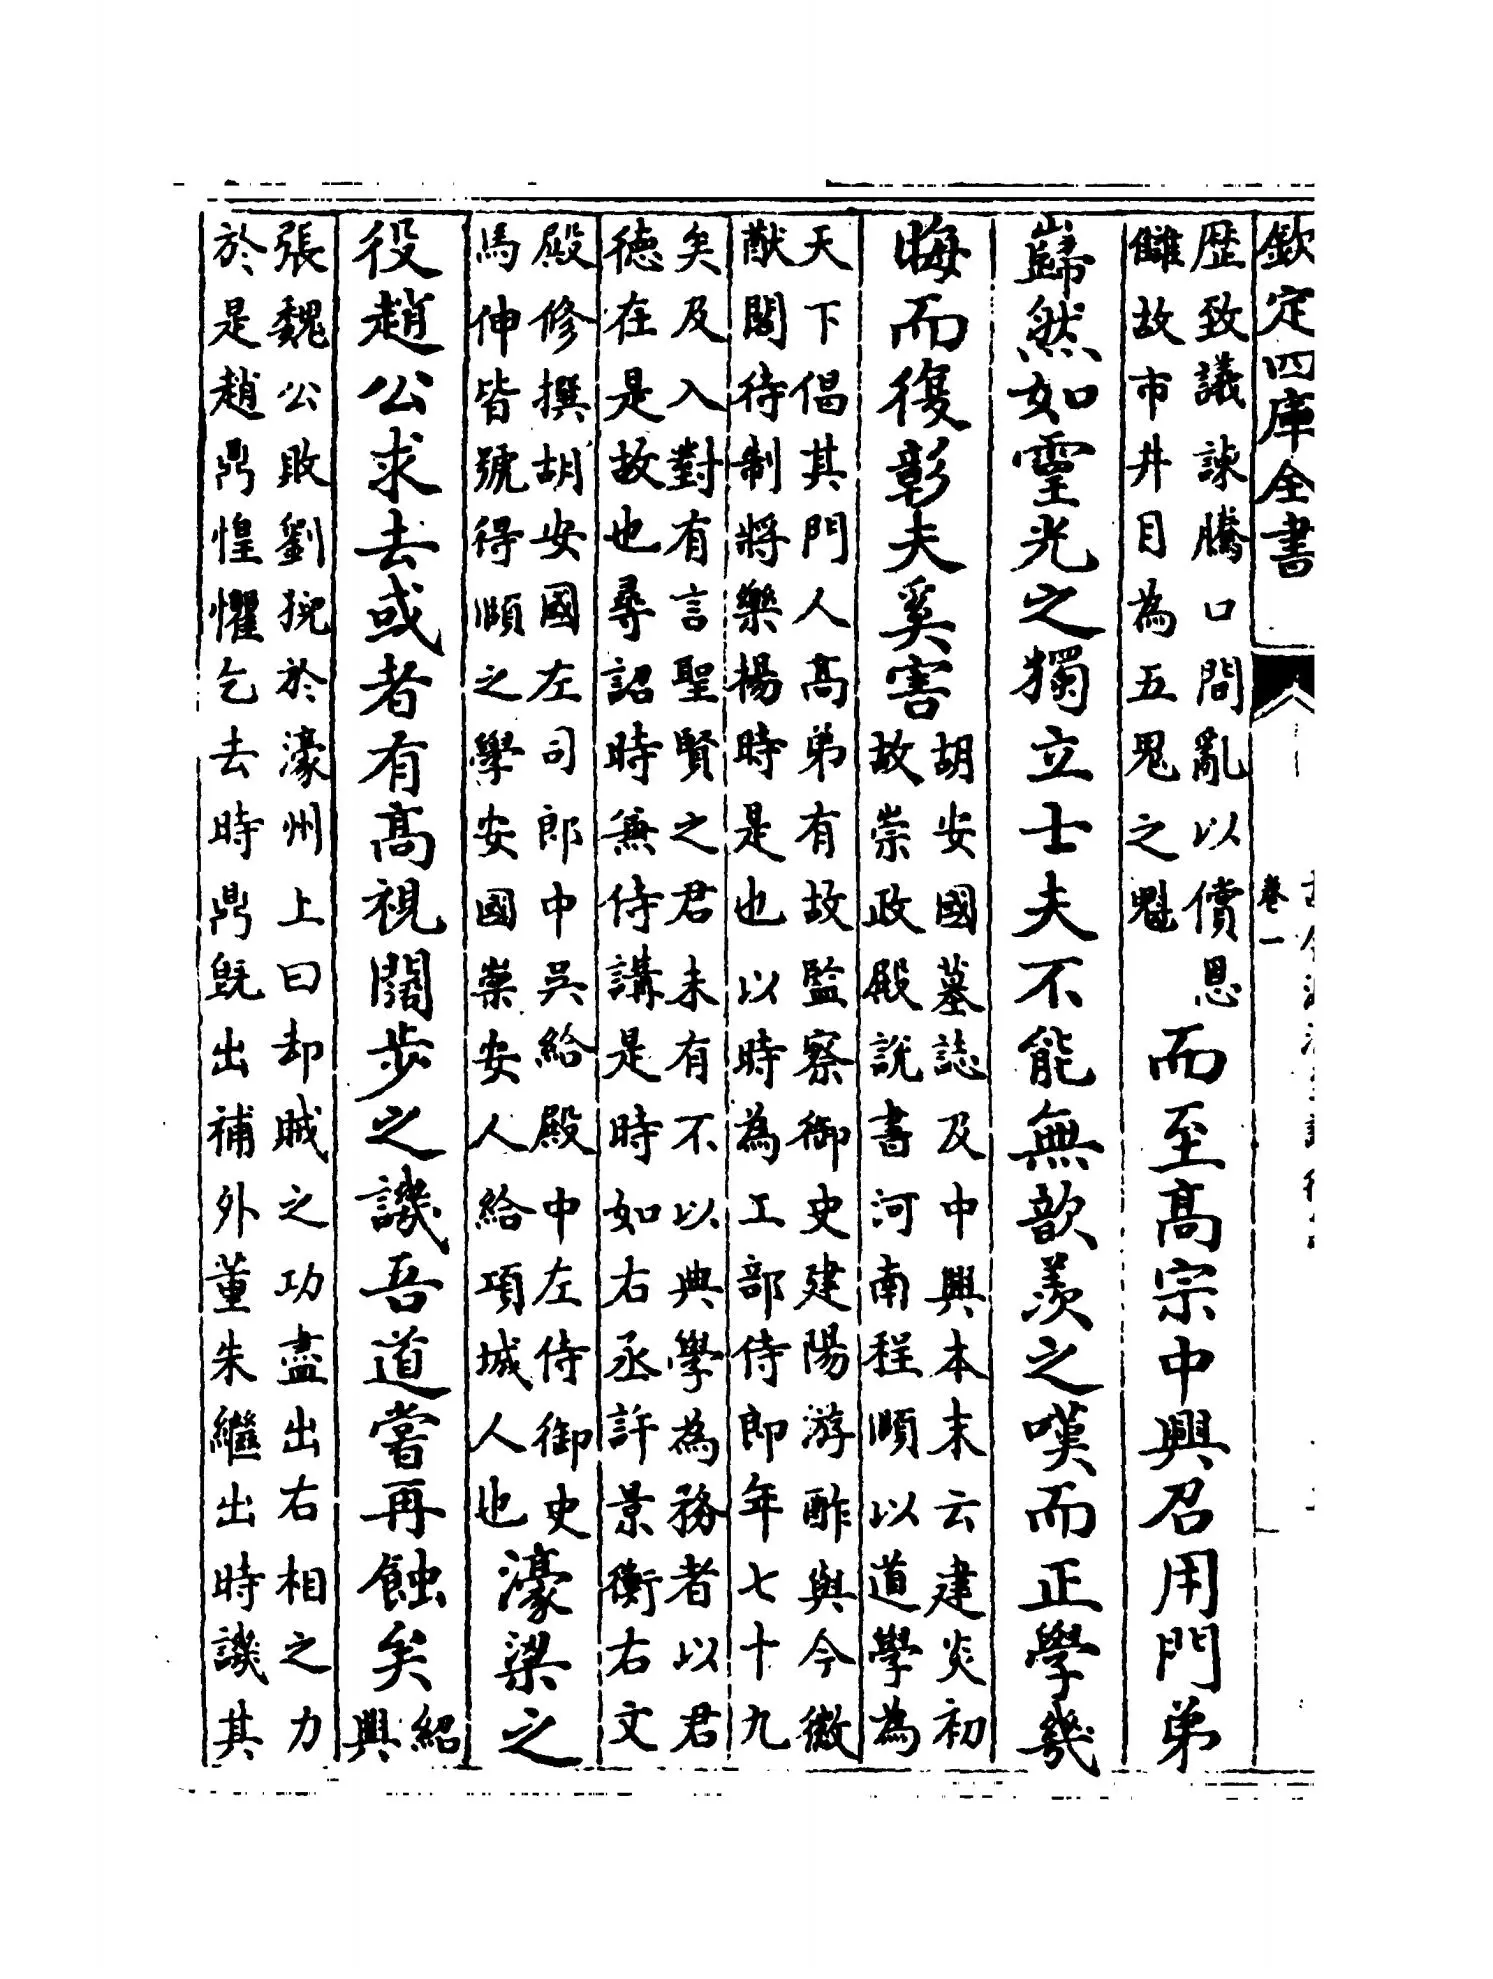 欽定四庫全書
卷一
歴致議諫騰口間亂以償恩
讎故市井目為五鬼之魁
而至高宗中興召用門弟
巋然如靈光之獨立士夫不能無歆羨之嘆而正學幾
晦而復彰夫奚害
胡安國墓誌及中興本末云建炎初
故崇政殿說書河南程頤以道學為
天下倡其門人高弟有故監察御史建陽游酢與今徽
猷閣待制將樂楊時是也以時為工部侍郎年七十九
矣及入對有言聖賢之君未有不以典學為務者以君
德在是故也尋詔時兼侍講是時如右丞許景衡右文
殿修撰胡安國左司郎中吳給殿中左侍御史
馬伸皆號得頤之學安國崇安人給項城人也
濠梁之
役趙公求去或者有高視闊步之譏吾道嘗再蝕矣
紹
興
張魏公敗劉猊於濠州上曰却賊之功盡出右相之力
於是趙鼎惶懼乞去時鼎旣出補外董朱繼出時譏其